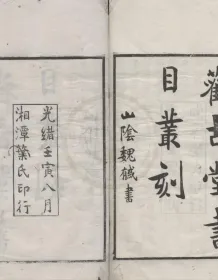 觀古堂書
目叢刻
山陰魏戫書
光緒壬寅八月
湘潭葉氏印行